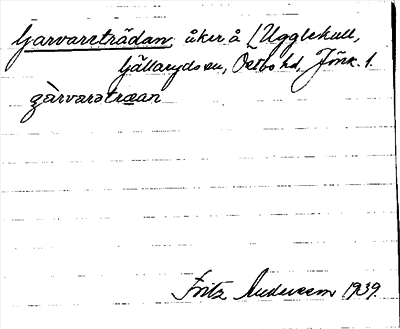 Garvareträdan, åker å L Ugglekull,
Gällaryds sn, Östbo hd, Jönk. l.
gàrvarətræan
Fritz Andersson 1939.